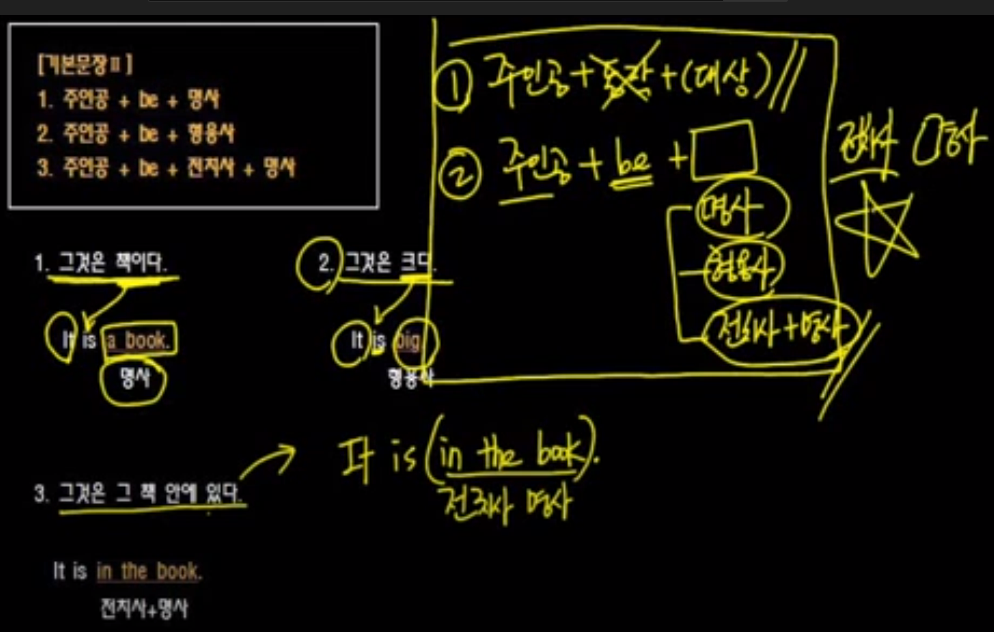 [기본문장Ⅱ]
1. 주인공 + be + 명사
2. 주인공 + be + 형용사
3. 주인공 + be + 전치사 + 명사
① 주인공 + 동작 + (대상)
② 주인공 + be +
명사
형용사
전치사 + 명사
전치사 명사
1. 그것은 책이다.
It is a book.
명사
2. 그것은 크다.
It is big.
형용사
3. 그것은 그 책 안에 있다.
It is (in the book).
전치사 명사
It is in the book.
전치사+명사